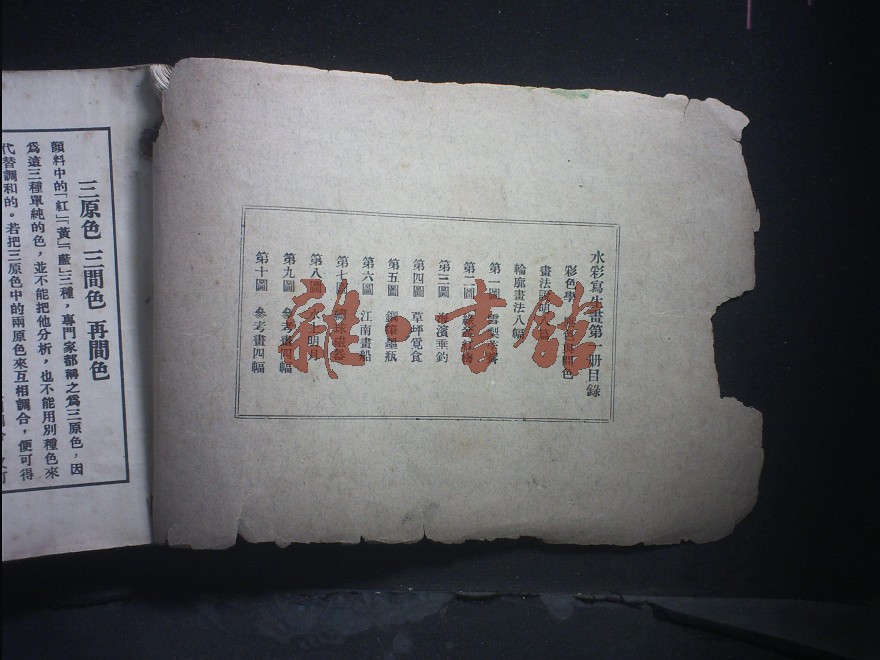 水彩寫生畫第一册目錄
彩色學
畫法說明
輪廓畫法八幅
第一圖
第二圖
第三圖 海濱垂釣
第四圖 草坪覓食
第五圖 鋼筆墨瓶
第六圖 江南畫船
第七圖
第八圖 水上明月
第九圖 參考畫四幅
第十圖 參考畫四幅
雜·書館
三原色 三間色 再間色
顏料中的「紅」「黃」「藍」三種，專門家都稱之爲三原色，因
爲這三種單純的色，並不能把他分析，也不能用別種色來
代替調和的。若把三原色中的兩原色來互相調合，便可得